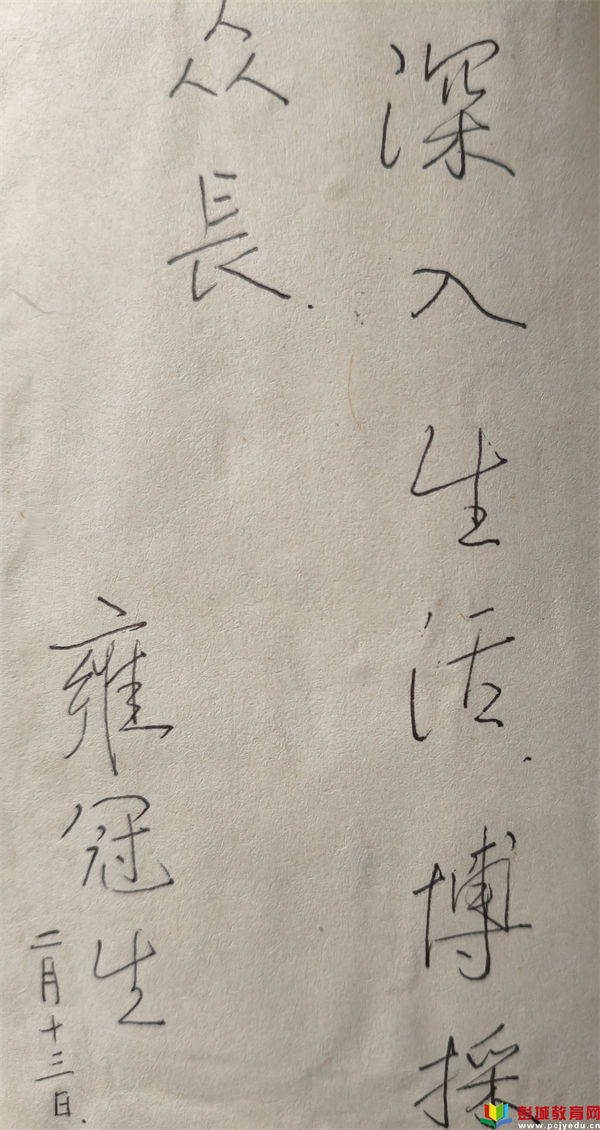 深入生活.博採
众長.
雍冠生
二月十三日.
彭城教育网
www.pcjyedu.cn